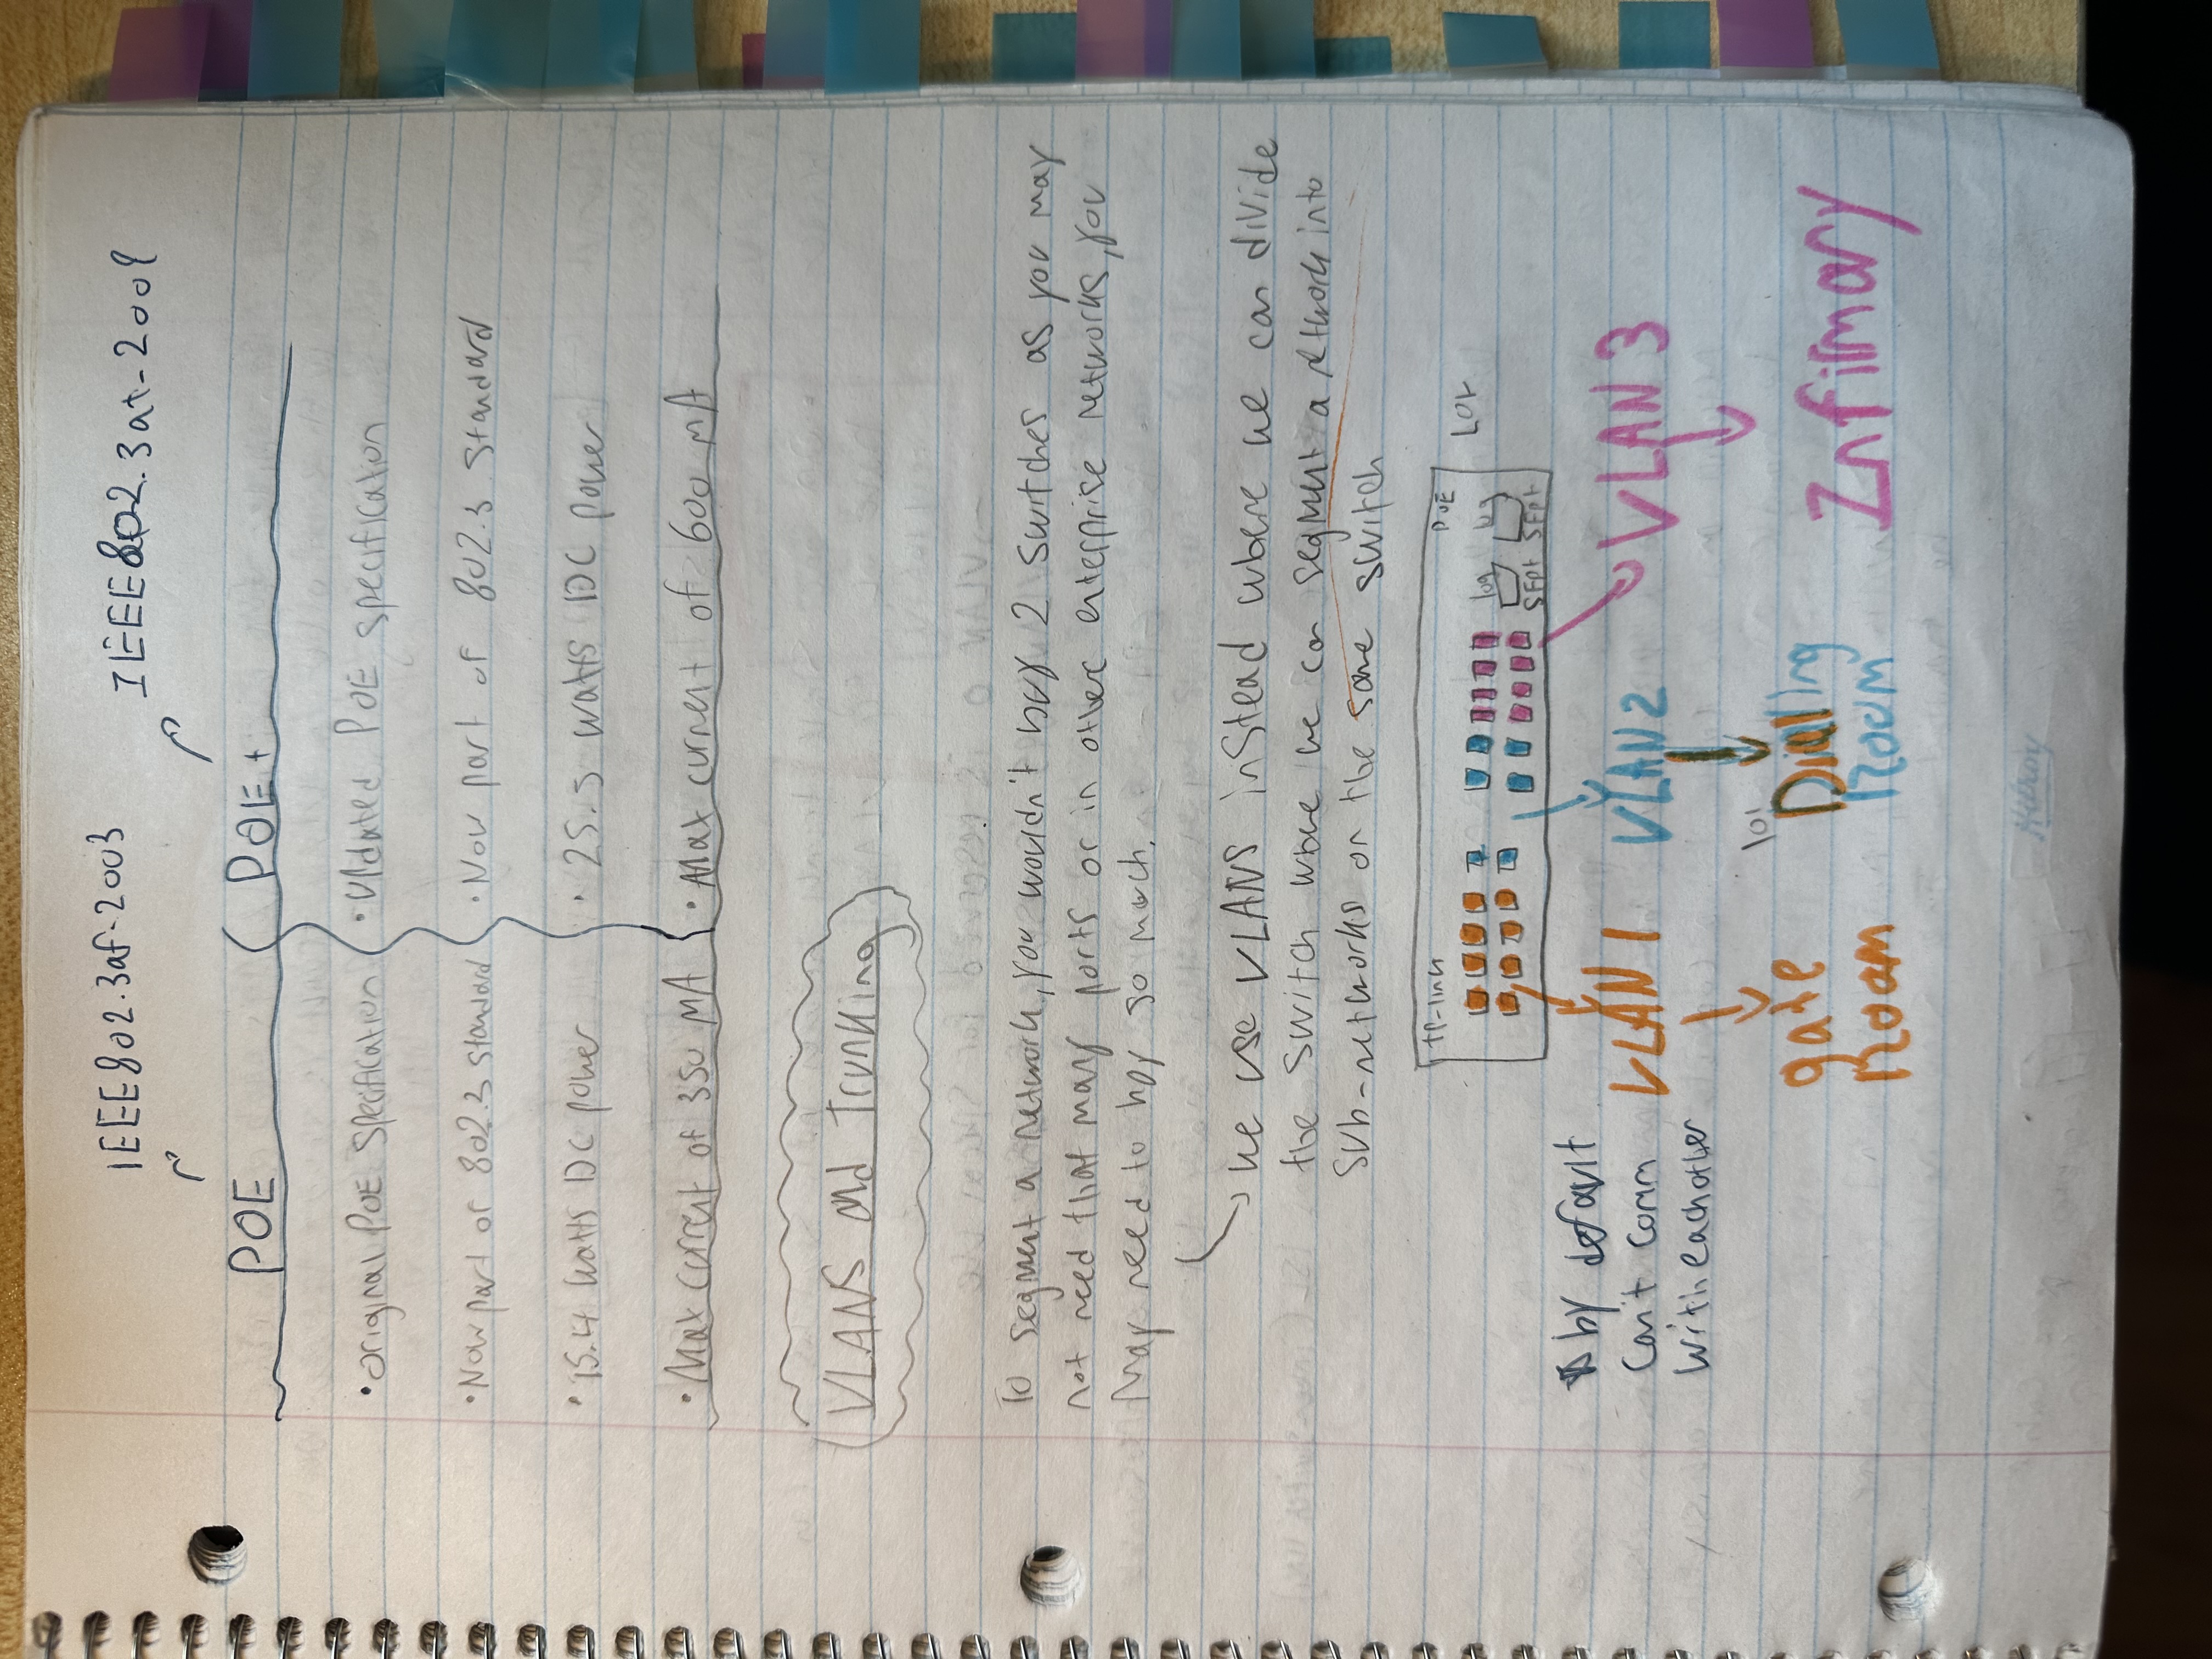 IEEE802.3af-2003
IEEE802.3at-2009
POE
POE+
•Original POE Specification
•Updated POE specification
•Now part of 802.3 Standard
•Now part of 802.3 Standard
•15.4 watts DC power
•25.5 watts DC power
•Max current of 350 mA
•Max current of 600 mA
VLANS and Trunking
To segment a network, you wouldn't buy 2 switches as you may
not need that many ports or in other enterprise networks, you
May need to buy so much.
we use VLANS instead where we can divide
the switch where we can segment a network into
sub-networks on the same switch
TP-link
POE
LOL
10g
10g
SFP+
SFP+
by default
Can't comm
With eachother
VLAN 1
VLAN 2
VLAN 3
gate
Room
lol
Dialling
Room
Infirmary
Hilroy